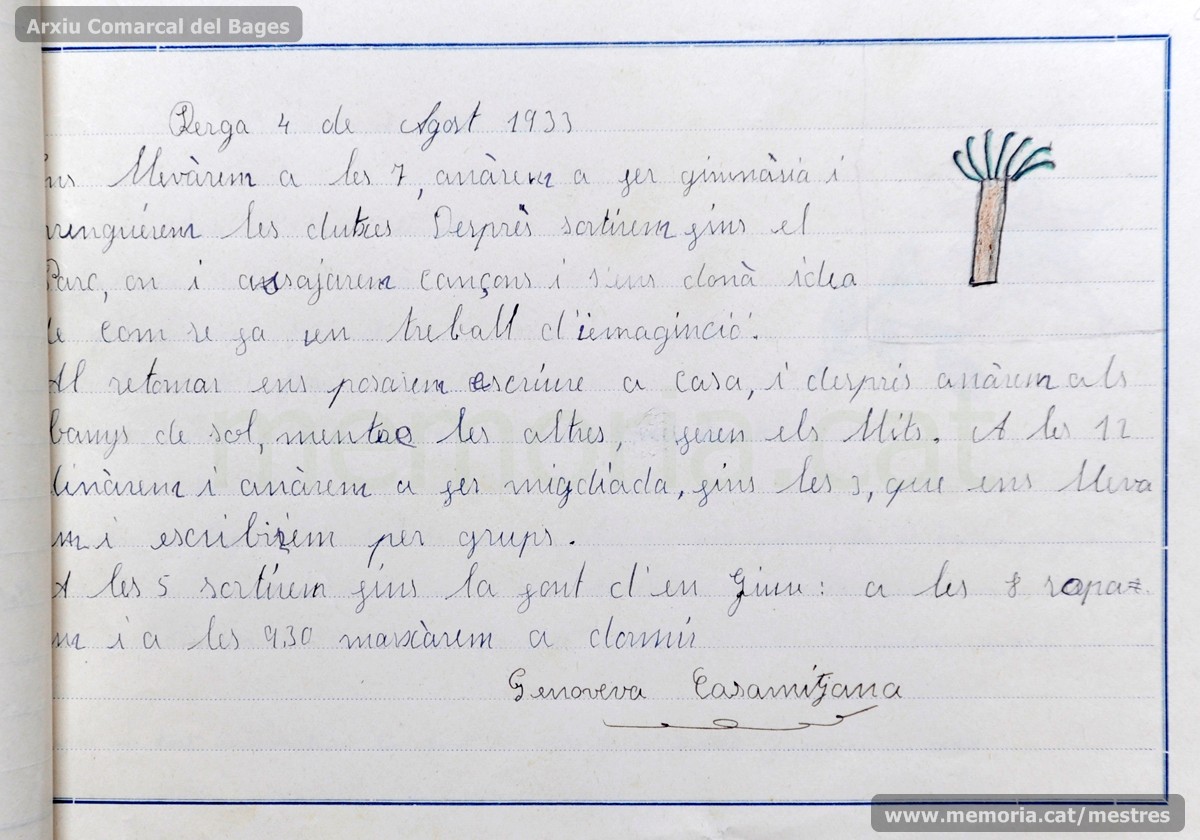 Arxiu Comarcal del Bages
Berga 4 de Agost 1933
Ens llevàrem a les 7, anàrem a fer gimnàsia i
prenguérem les dutxes Després sortirem fins el
Parc, on i ensajarem cançons i s'ens donà idea
de com se fa un treball d'imaginció.
Al retornar ens posarem escriure a casa, i després anàrem als
banys de sol, mentre les altres, feren els llits. A les 12
dinàrem i anàrem a fer migdiada, fins les 3, que ens lleva
m i escribirem per grups.
A les 5 sortirem fins la font d'en : a les 8 sopa
m i a les 9.30 marxàrem a dormir
Genoveva Casamitjana
memoria.cat
www.memoria.cat/mestres